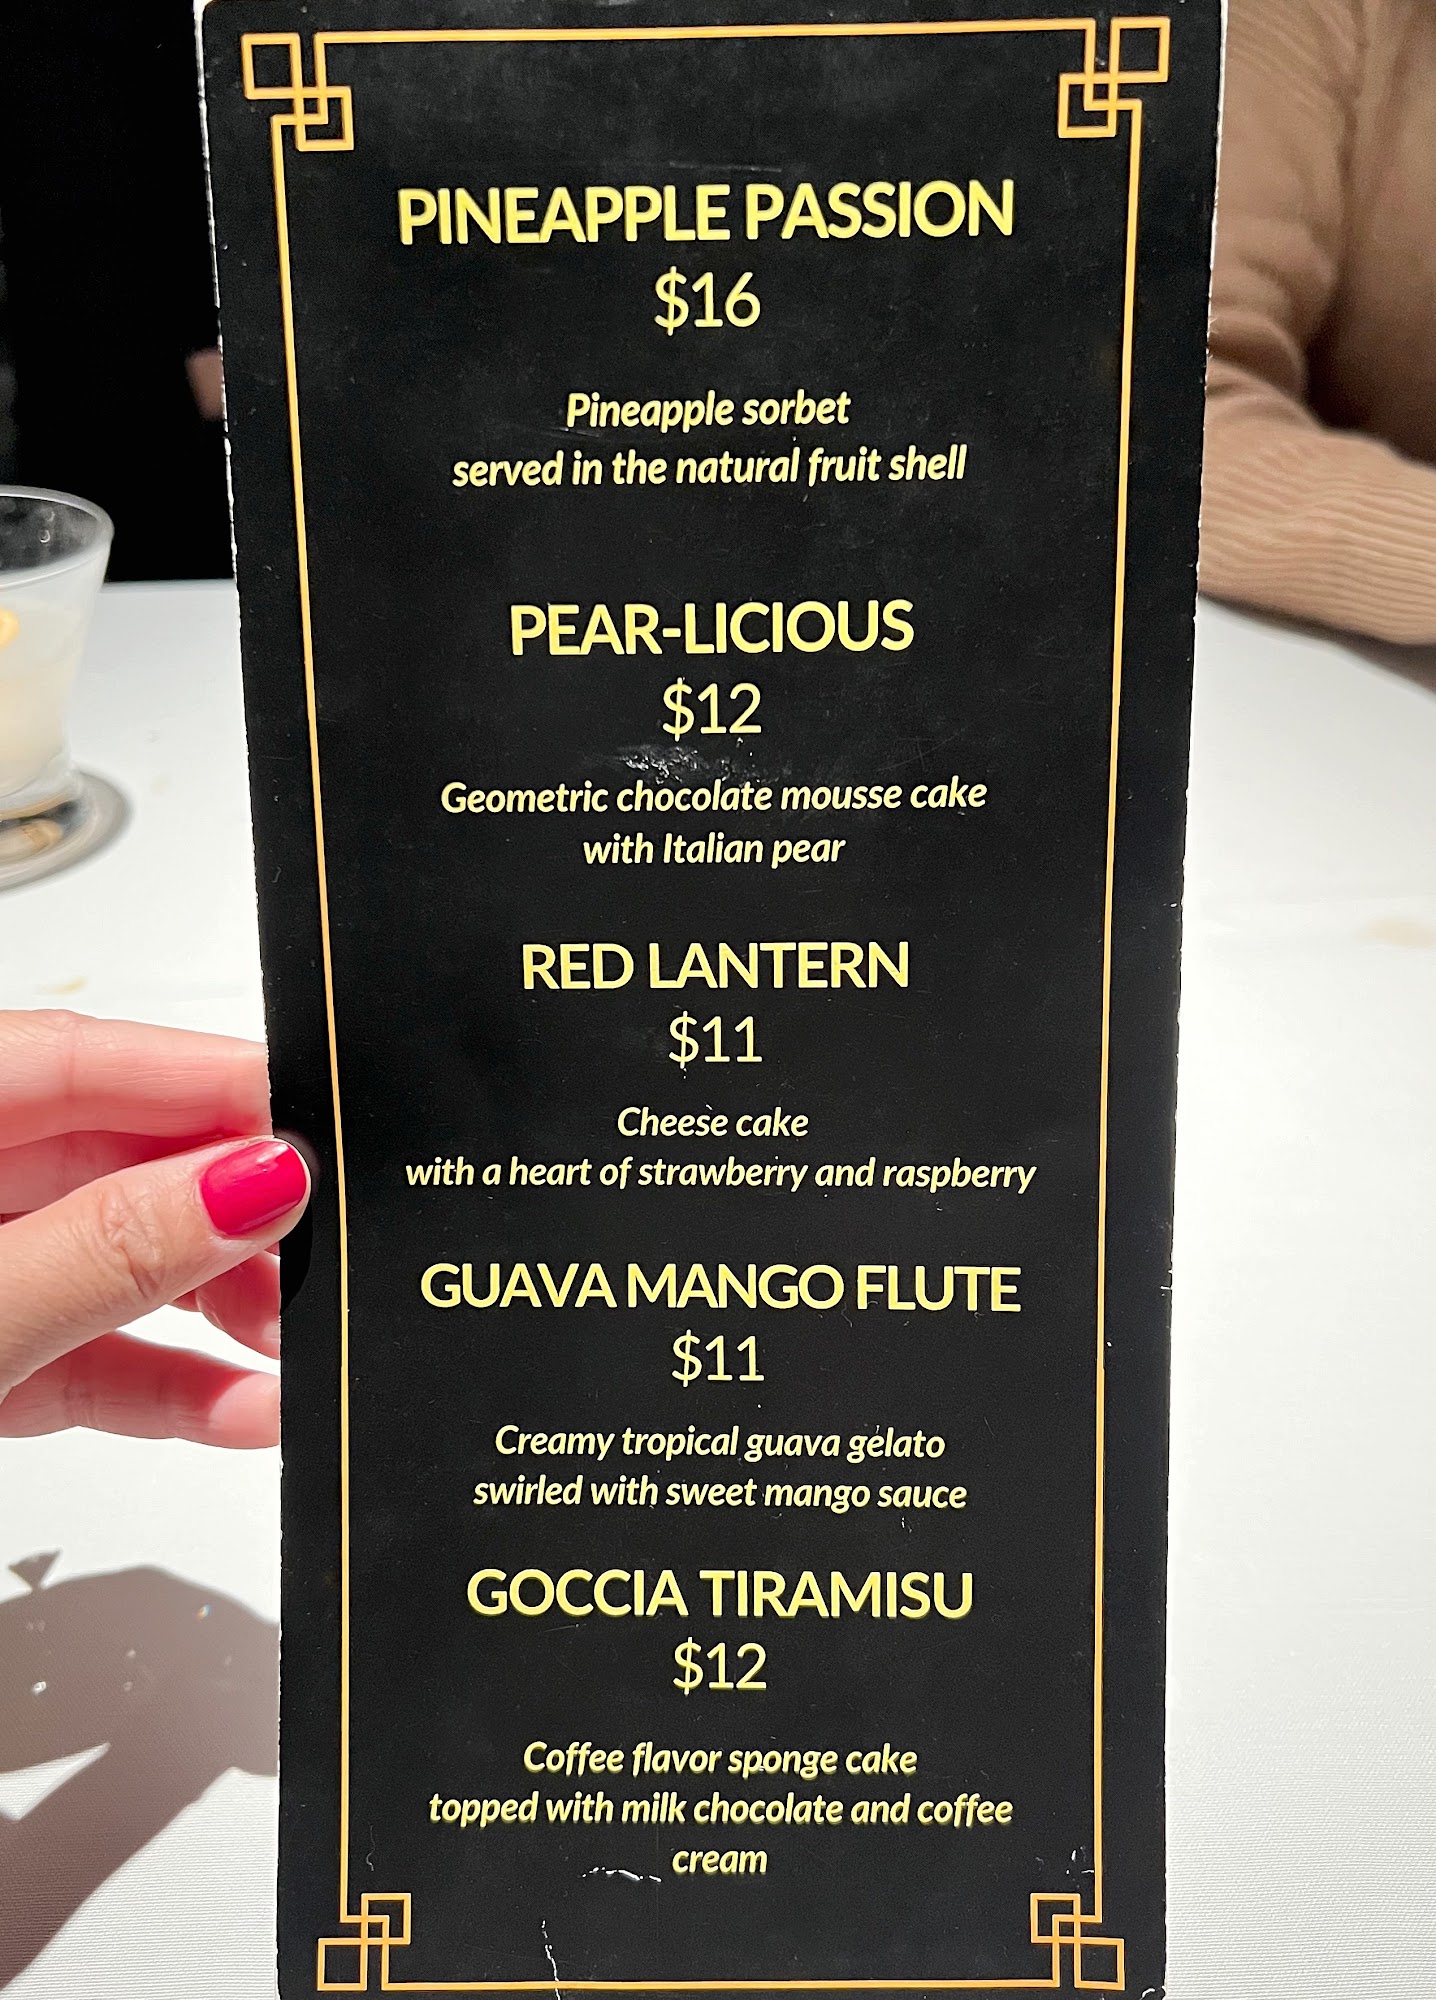 PINEAPPLE PASSION
$16
Pineapple sorbet
served in the natural fruit shell
PEAR-LICIOUS
$12
Geometric chocolate mousse cake
with Italian pear
RED LANTERN
$11
Cheese cake
with a heart of strawberry and raspberry
GUAVA MANGO FLUTE
$11
Creamy tropical guava gelato
swirled with sweet mango sauce
GOCCIA TIRAMISU
$12
Coffee flavor sponge cake
topped with milk chocolate and coffee
cream